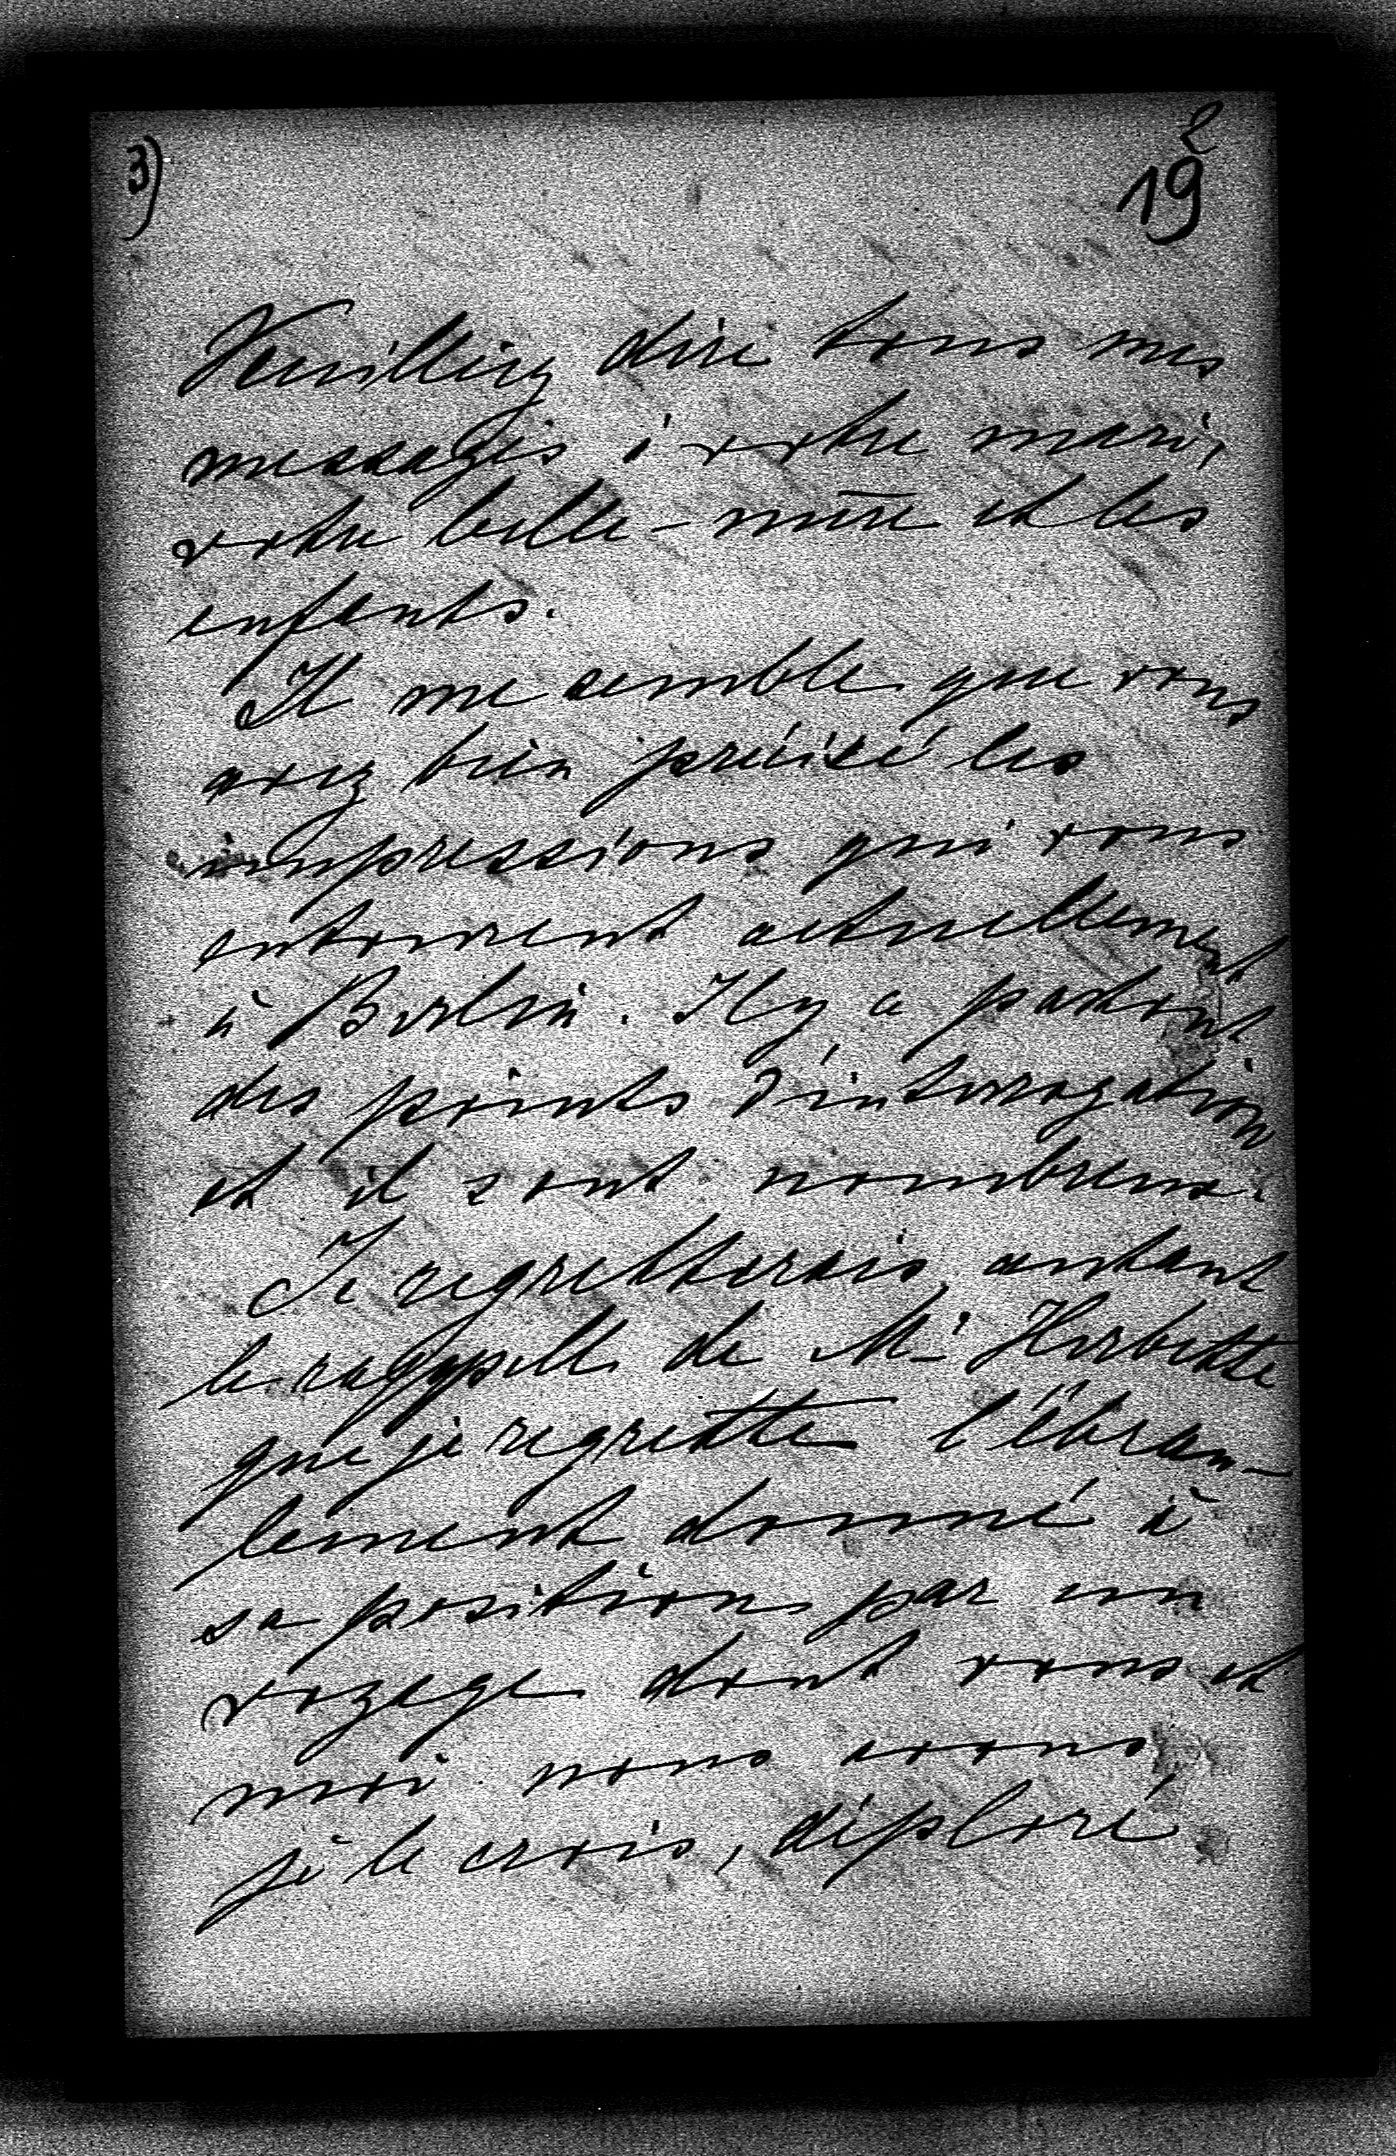 3)
2
19
Veuillez dire tous mes
messages à votre mari,
votre belle-mère et les
enfants.
Il me semble que vous
avez bien précisé les
impressions qui vous
entourent actuellement
à Berlin. Il y a partout
des points d'interrogation
et il sont nombreux.
Je regretterais autant
le rappell de Mr Herbette
que je regrette l'ébran-
lement donné à
sa position par un
voyage dont vous et
moi nous avons
je le crois, déploré